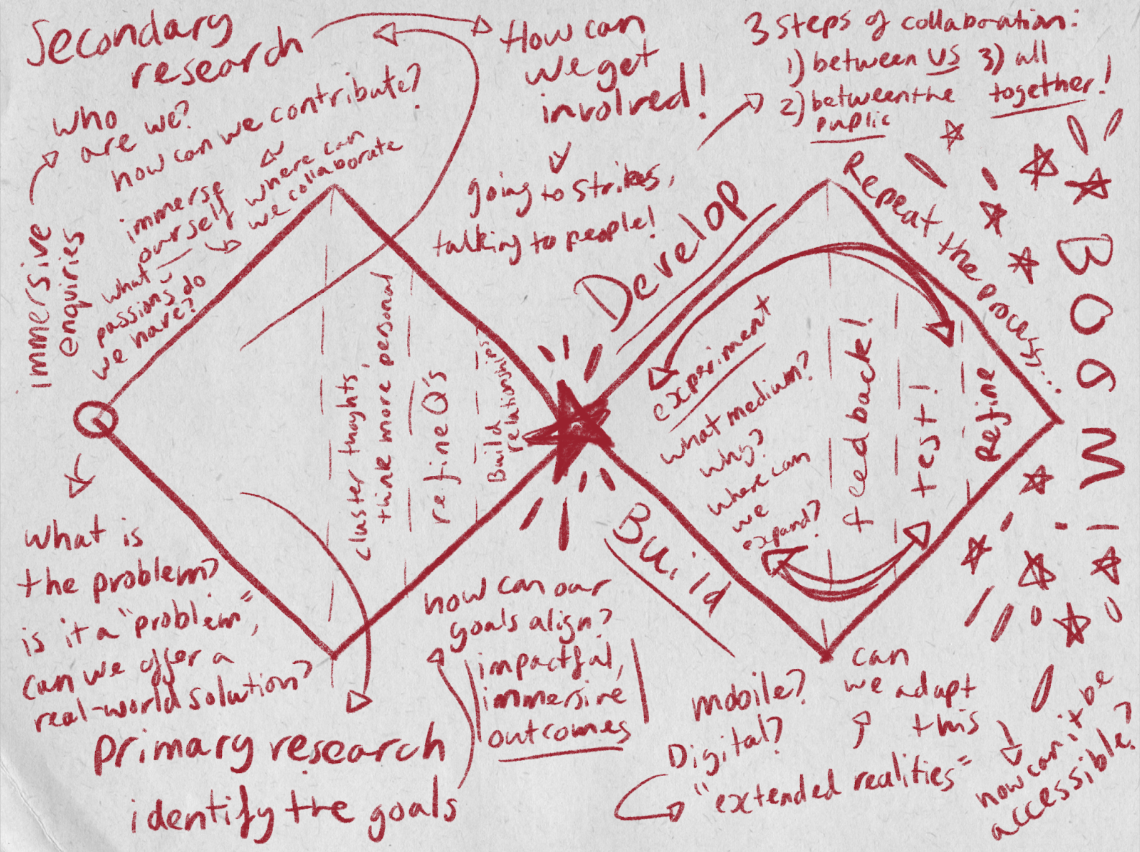 Secondary
research
How can
we get
involved!
3 steps of collaboration:
1) between us
2) between the
public
3) all
together!
who
are we?
how can we contribute?
immerse
ourself
where can
we collaborate
what
passions do
we have?
immersive
enquiries
going to strikes,
talking to people!
Develop
Repeat the process...
BOOM!
cluster thoughts
think more personal
refine Q's
Build
relationships
experiment
what medium?
why?
where can
we
expand?
feedback!
test!
Refine
Build
what is
the problem?
is it a "problem",
can we offer a
real-world solution?
primary research
identify the goals
how can our
goals align?
impactful,
immersive
outcomes
mobile?
Digital?
"extended realities"
can
we adapt
this
how can it be
accessible?